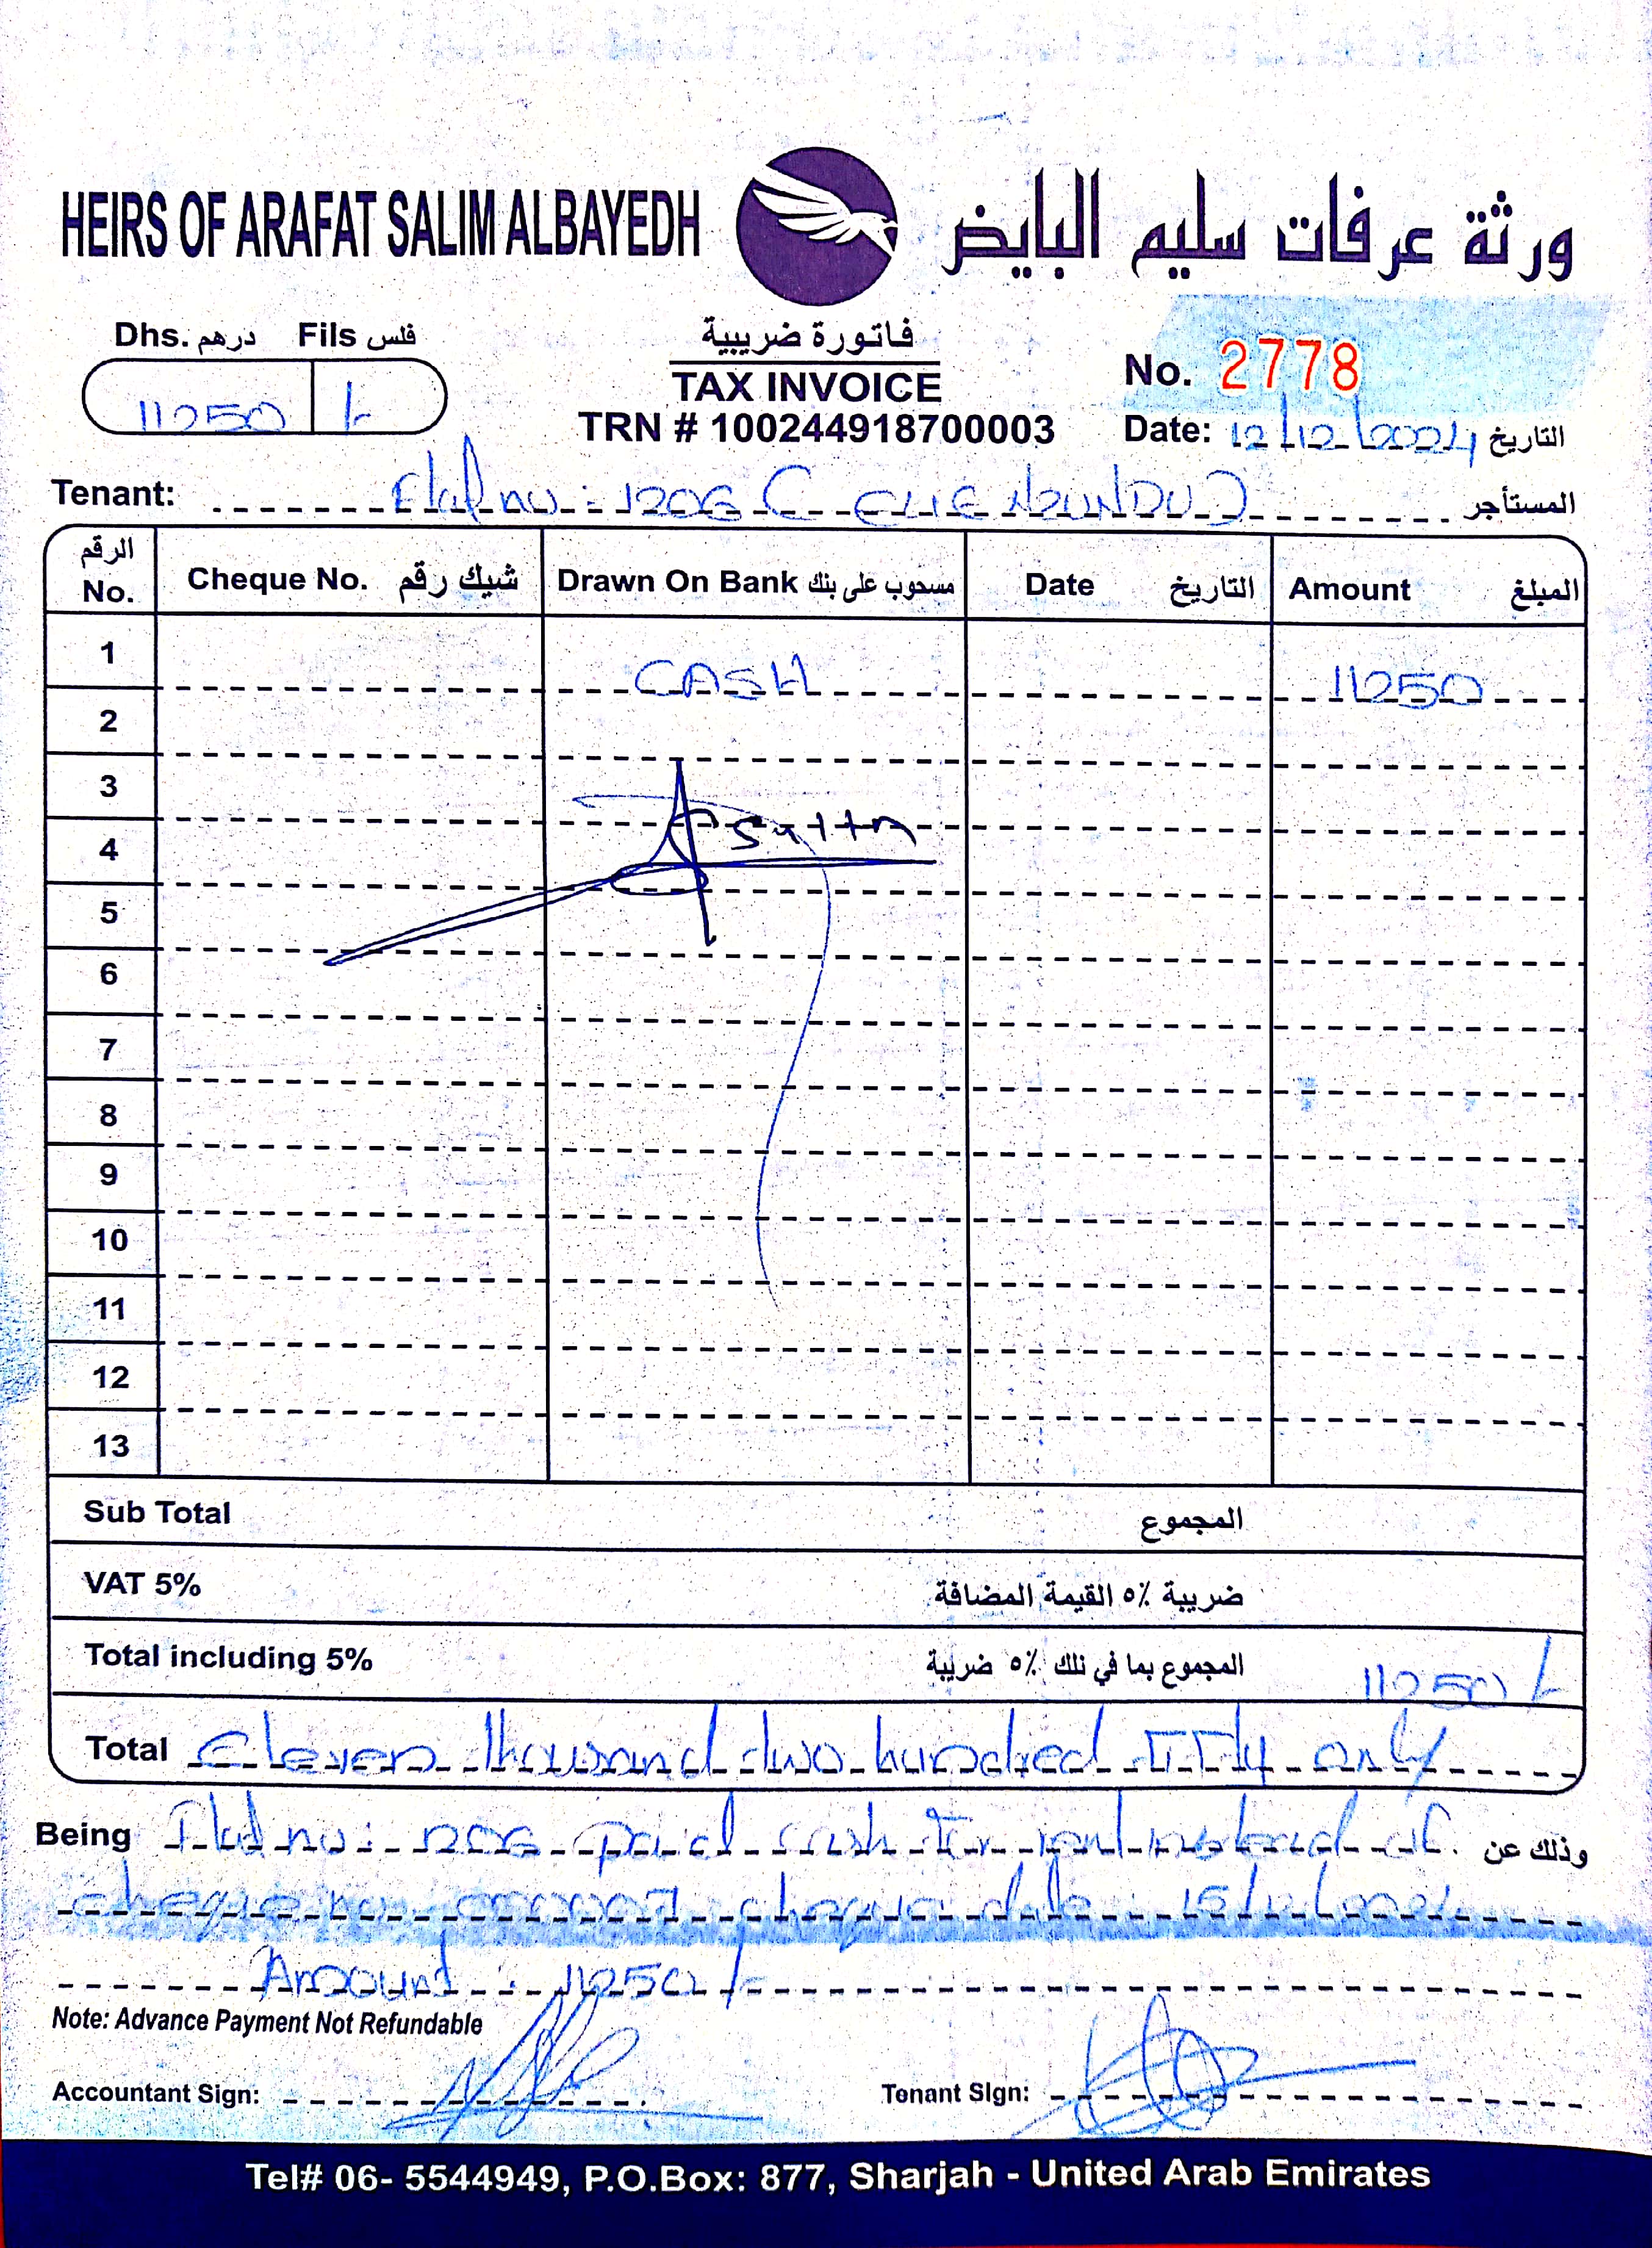 HEIRS OF ARAFAT SALIM ALBAYEDH ورثة عرفات سليم البايض
Dhs. درهم Fils فلس
11250 /-
فاتورة ضريبية
TAX INVOICE
TRN # 100244918700003
No. 2778
Date: 12/12/2024 التاريخ
Tenant: Flat no: 1206 (ELIE NZUNDU) المستأجر
الرقم No. Cheque No. شيك رقم Drawn On Bank مسحوب على بنك Date التاريخ Amount المبلغ
1 CASH 11250
2
3
4
5
6
7
8
9
10
11
12
13
Sub Total المجموع
VAT 5% ضريبة ٥٪ القيمة المضافة
Total including 5% المجموع بما في نلك ٥٪ ضريبة 11250/-
Total Eleven thousand two hundred fifty only
Being Flat no: 1206 paid cash for rent instead of وذلك عن
cheque no 000007 cheque date: 15/12/2024
Amount: 11250/-
Note: Advance Payment Not Refundable
Accountant Sign: Tenant Sign:
Tel# 06- 5544949, P.O.Box: 877, Sharjah - United Arab Emirates